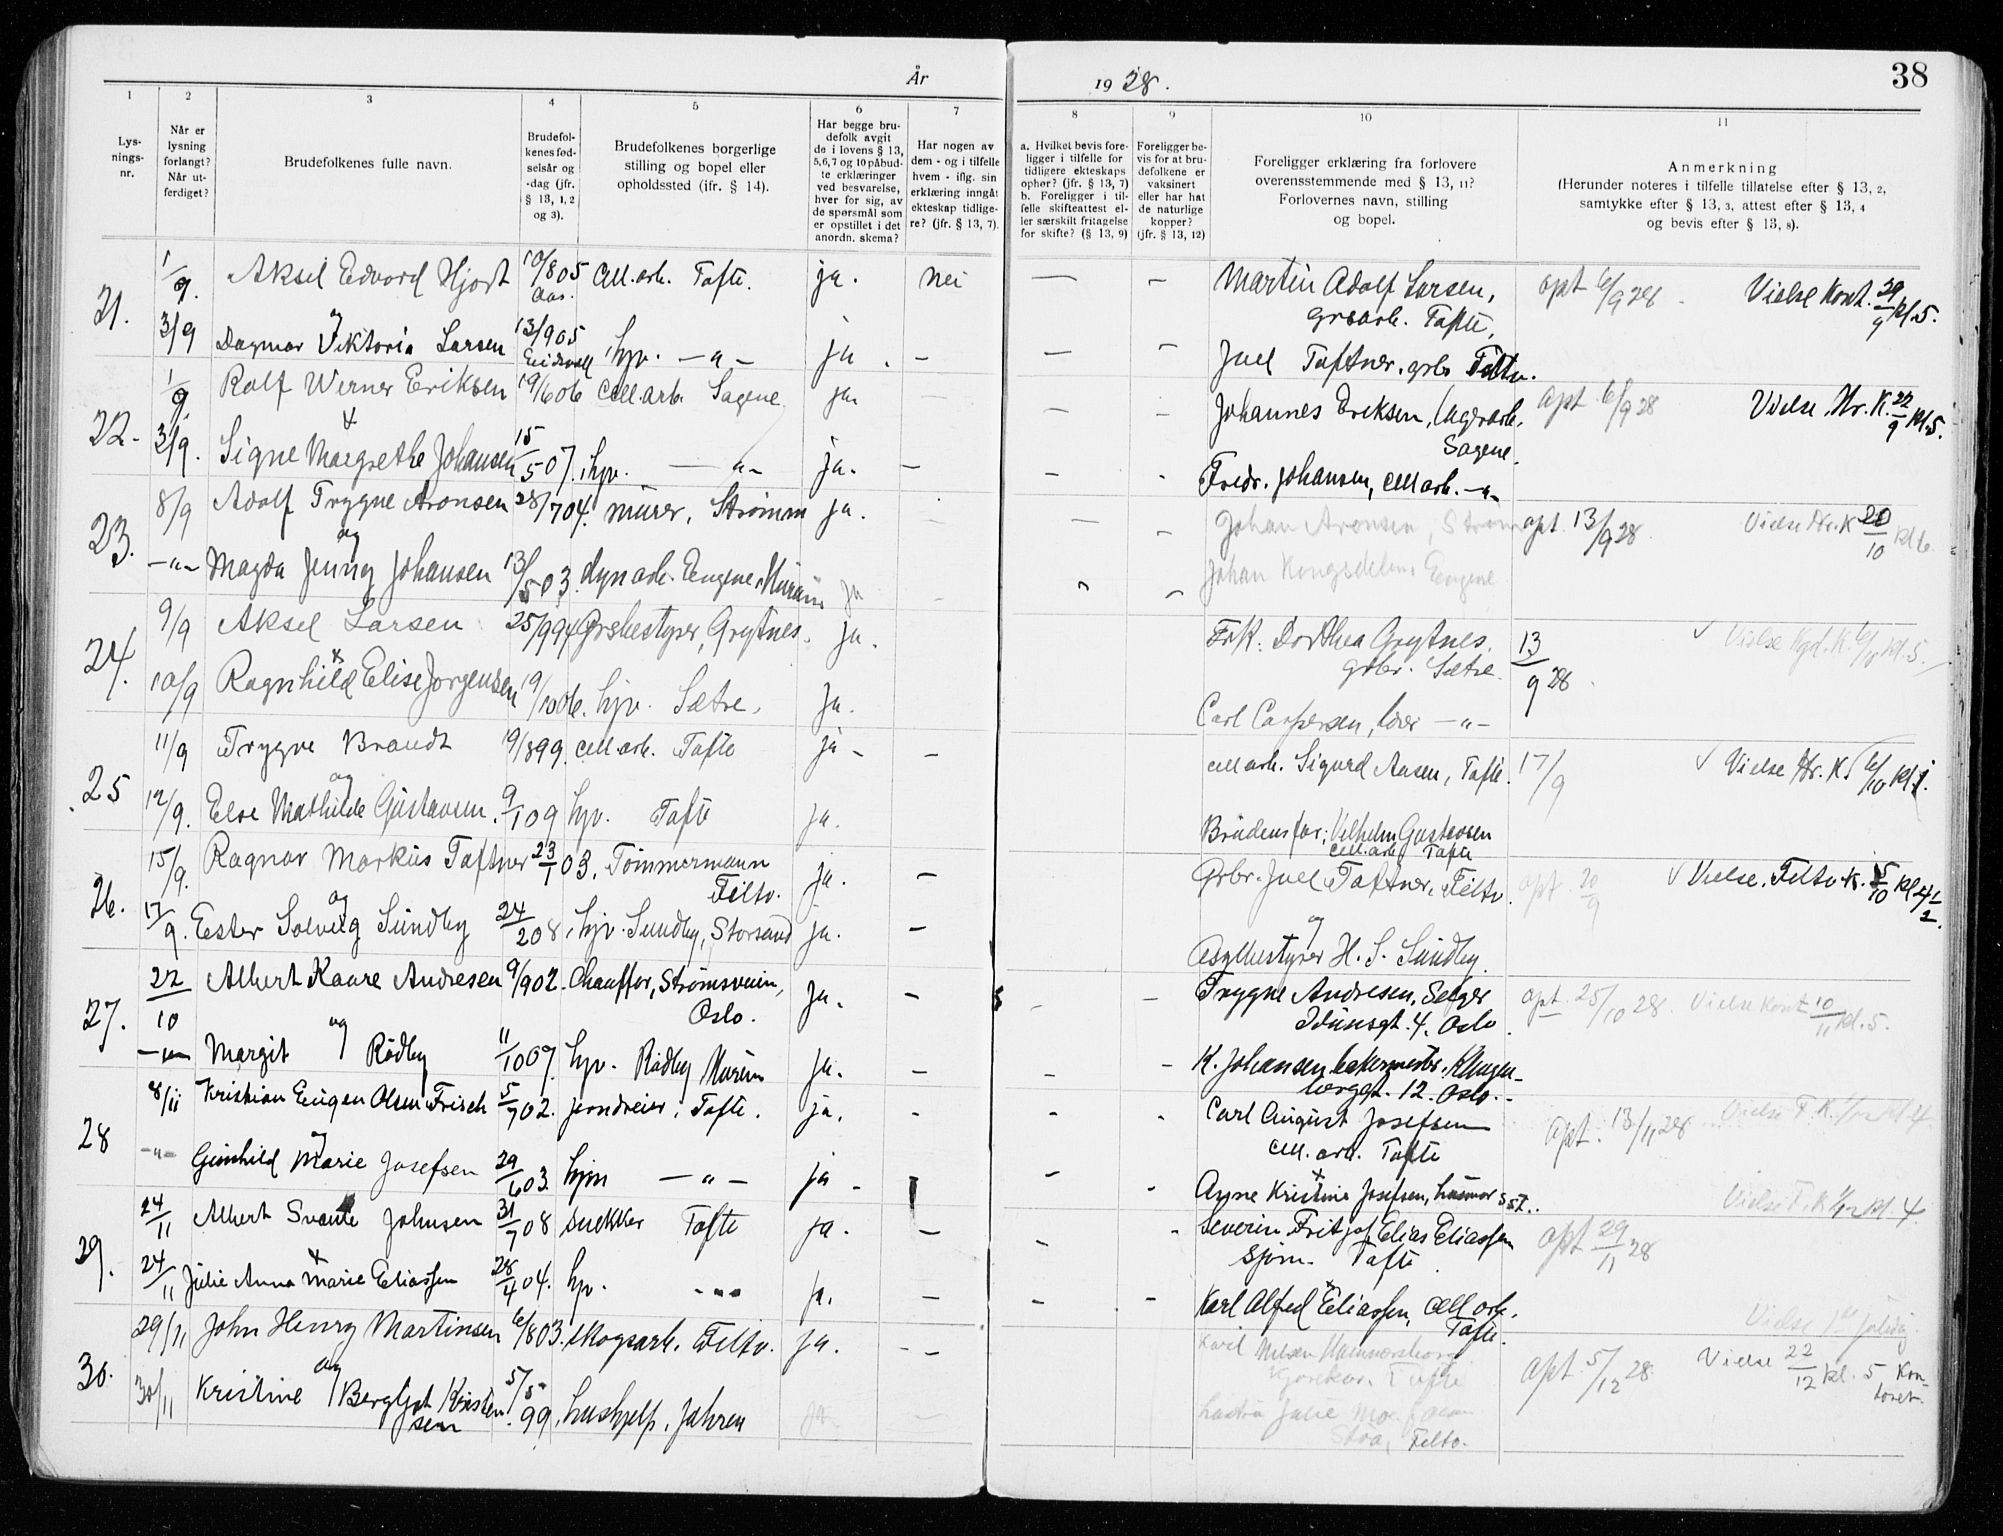 År 1928.
38
1
2
3
4
5
6
7
8
9
10
11
Lys-
nings-
nr.
Når er
lysning
forlangt?
Når ut-
ferdiget?
Brudefolkenes fulle navn.
Brudefol-
kenes fød-
selsår og
-dag (jfr.
§ 13, 1, 2
og 3).
Brudefolkenes borgerlige
stilling og bopel eller
opholdssted (ifr. § 14).
Har begge bru-
defolk avgit
de i lovens § 13,
5,6,7 og 10 påbud-
te erklæringer
ved besvarelse,
hver for sig, av
de spørsmål som
er opstillet i det
anordn. skema?
Har nogen av
dem - og i tilfelle
hvem - iflg. sin
erklæring inngåt
ekteskap tidlige-
re? (jfr. § 13, 7).
a. Hvilket bevis fore-
ligger i tilfelle for
tidligere ekteskaps
ophør? (jfr. § 13, 7)
b. Foreligger i til-
felle skifteattest el-
ler særskilt fritagelse
for skifte? (§ 13, 9)
Foreligger be-
vis for at bru-
defolkene er
vaksinert
eller har hat
de naturlige
kopper?
(jfr. § 13, 12)
Foreligger erklæring fra forlovere
overensstemmende med § 13, 11?
Forlovernes navn, stilling
og bopel.
Anmerkning
(Herunder noteres i tilfelle tillatelse efter § 13, 2,
samtykke efter § 13, 3, attest efter § 13, 4
og bevis efter § 13, 8).
21. 1/9. Aksel Edvard Hjort 10/805 Cell.arb. Tofte. ja. nei — – Martin Adolf Larsen, opt 6/9 28. Vielse Kont. 29/9 kl. 5.
Aas. grbarb. Tofte,
og
3/9 Dagmar Viktoria Larsen 13/905 hjv. –"– ja. – — – Juel Toftner. grbr Filtv.
Eidsvoll
22. 1/9. Rolf Werner Eriksen 19/606 Cell.arb. Sagene ja. – – – Johannes Eriksen, lagerarb. opt. 6/9 28 Vielse Hr. K. 22/9 kl. 5.
+ Sagene.
3/9. Signe Margrethe Johansen 15/507. hjv. –"– ja. – – - Fredr. Johansen, cell arb. –"–
23. 8/9 Adolf Trygve Aronsen 28/704. murer, Strømm ja. – – – Johan Aronsen, Strøm opt. 13/9 28 Vielse Hr. K 20/10 kl 6.
og
–"– Magda Jenny Johansen 13/503. dynarb. Engene, Hurum ja – Johan Kongsdelen, Engene
24. 9/9 Aksel Larsen 25/994 Grbestyrer, Grytnes. ja. Frk. Dorthea Grytnes, 13/9 28. ✓ Vielse Kgd. K. 6/10 kl. 5.
+ grbr. Sætre.
10/9 Ragnhild Elise Jorgensen 19/1006. hjv. Sætre, ja. Carl Caspersen, lærer –"–
25 11/9 Trygve Brandt 19/899. cell arb. Tofte ja – – cell arb. Sigurd Aasen, Tofte. 17/9 ✓ Vielse Hr. K. 6/10 kl
og
12/9. Else Mathilde Gustavsen. 9/109 hjv. Tofte ja. Brudens far; Vilhelm Gustavsen
cell.arb. Tofte
26. 15/9. Ragnar Markus Toftner 23/103. Tømmermann ja. – Grbr. Juel Toftner, Filtv. opt 20/9 ✓ Vielse. Filtv. K. 5/10 kl 4½.
Filtv.
og og
17/9. Ester Solveig Sundby 24/208. hjv. Sundby, Storsand ja. – Asylbestyrer H. S. Sundby.
27. 22/10 Albert Kaare Andresen 9/902. Chauffør, Strømsveien, ja. – – – Trygve Andresen, Selger opt. 25/10 28. Vielse Kont 10/11 kl. 5.
Oslo. Idunsgt. 4. Oslo.
og
–"– Margit Rødby 11/1007. hjv. Rødby Hurum ja. – – – K. Johansen bakermester, Klingen-
berggt. 12. Oslo.
28 8/11 Kristian Eugen Olsen Frisch 5/702. jerndreier, Tofte. ja. – – - Carl August Josefsen opt. 13/11 28 Vielse F. K. 1/12 kl 4.
cell. arb. Tofte
–"– Gunhild Marie Josefsen 29/603. hjm –"– ja – – - Agne Kristine Josefsen, husmor sst.
29. 24/11 Albert Svante Johnsen 31/708 snekker Tofte ja. – – - Severin Fritjof Elias Eliassen opt 29/11 28 Vielse F. K 1/12 kl. 4.
sjøm. Tofte
+
24/11 Julie Anna Marie Eliassen 28/404. hjv. –"– ja. – – – Karl Alfred Eliassen, cell arb.
Tofte.
30. 29/11 John Henry Martinsen 6/803. skogsarb. Filtv. ja. - – Karil Nilsen Hammersborg opt 5/12 28. Vielse 1ste juledag
og Tofte Vielse 22/12 kl. 5 Kon-
toret.
30/11 Kristine Bergljot Kristen 5/5 99. hushjelp. Jahren ja – Julie
sen Filtv.